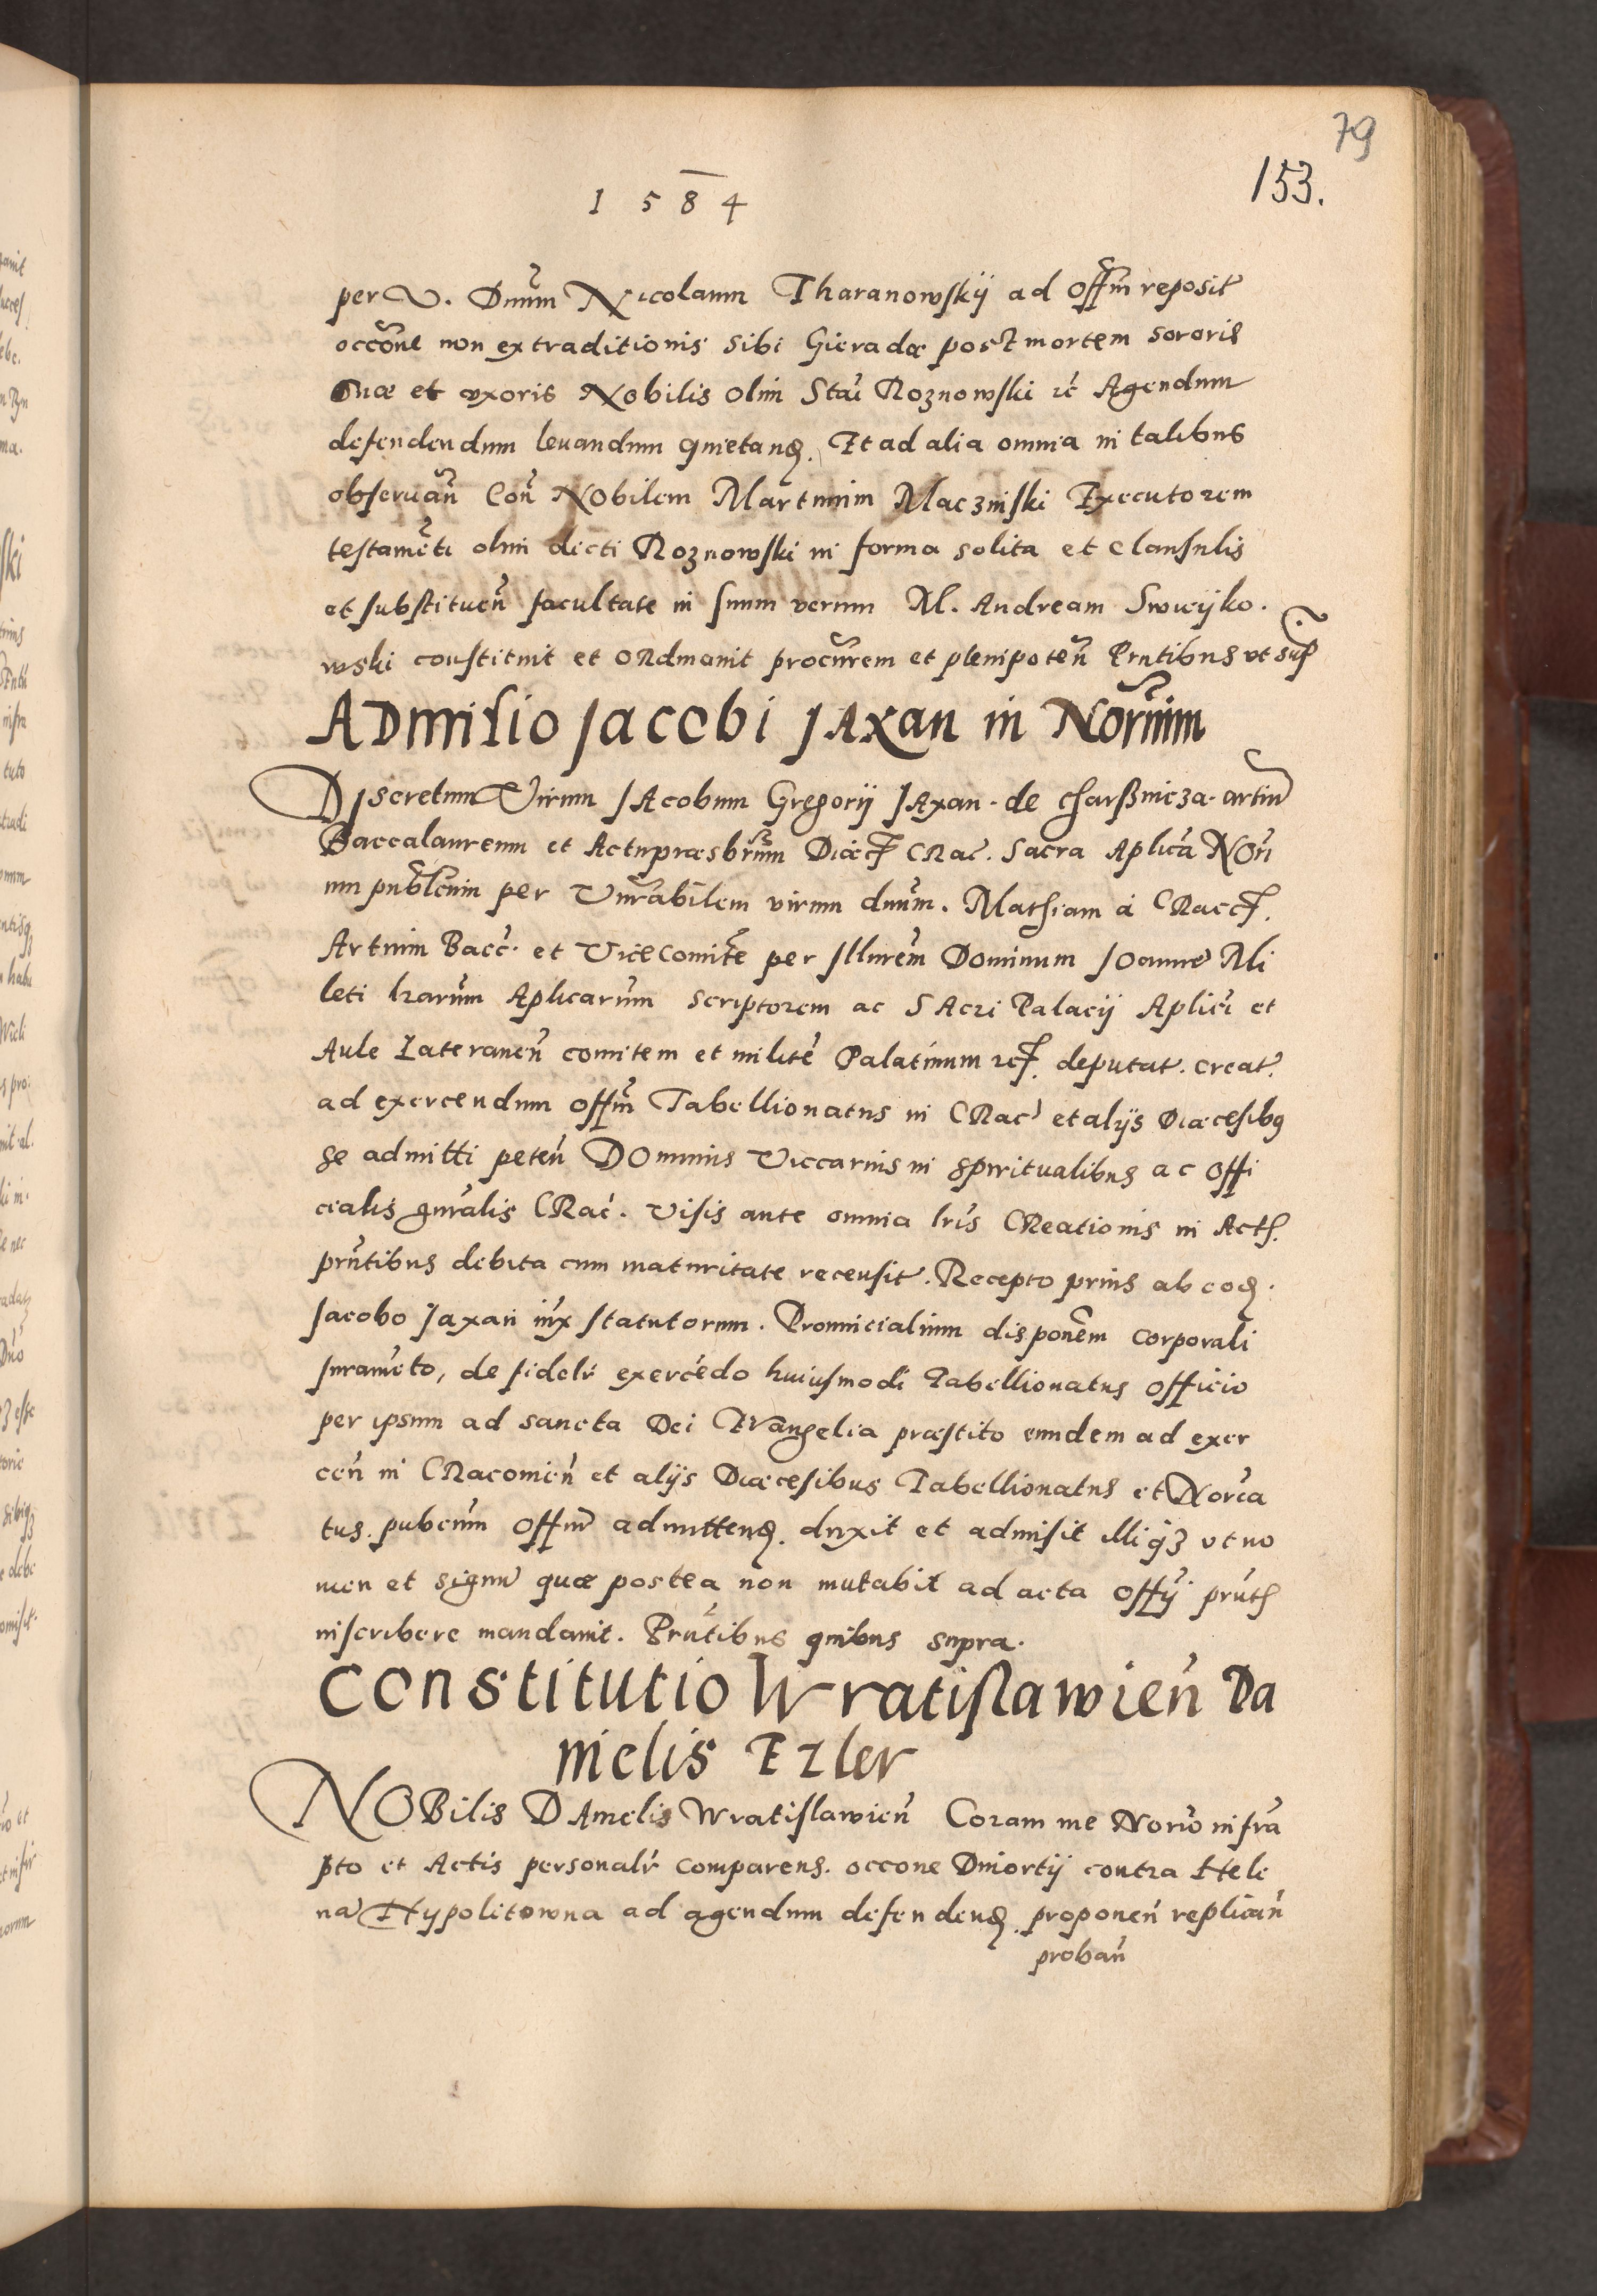 79
153.
1 5 8 4
per V. Dnum Nicolaum Tharanowskij ad Offm reposit
occone non extraditionis sibi Gieradæ post mortem sororis
suæ et vxoris Nobilis olim Stai Roznowski rc Agendum
defendendum leuandum quietand. Et ad alia omnia in talibus
obseruan Con Nobilem Martinum Maczinski Executorem
testameti olim dicti Roznowski in forma solita et clausulis
et substituen facultate in suum verum M. Andream Swieijko.
wski constituit et ordinauit procurem et plenipoten Prntibus vt sup
Admisio Jacobi Jaxan in Norium
Discretum Virum Jacobum Gregorij Jaxan. de Charßnicza. artiu
Baccalaureum et Actupræsbrum Diæc Crac. Sacra Aplica Nori
um publcum per Vnrabilem virum dnum. Mathiam a Cracc.
Artium Bacc. et Vicecomite per Illurem Dominum Joanne Mi
leti lrarum Aplicarum scriptorem ac Sacri Palacij Aplici et
Aule Lateranen comitem et milite Palatinum rc. deputat. creat.
ad exercendum offm Tabellionatus in Crac et alijs Diæcesibq
se admitti peten Dominus Viccarius in spiritualibus ac Offi
cialis gnralis Crac. Visis ante omnia lris Creationis in Actis
prntibus debita cum maturitate recensit. Recepto prius ab eod.
Jacobo Jaxan iux statutorum. Prouincialium disponem corporali
Iurameto, de fideli exercedo huiusmodi Tabellionatus officio
per ipsum ad sancta Dei Evangelia præstito eundem ad exer
cen in Cracouien et alijs Diæcesibus Tabellionatus et Noria
tus. pubcum Offm admittend. duxit et admisit illiqz vt no
men et signu quæ postea non mutabit ad acta Offij prnt
inscribere mandauit. Prntibus quibus supra.
Constitutio Wratislawien Da
nielis Ezler
Nobilis Danielis Wratislawien Coram me Norio infra
pto et Actis personalr comparens. occone Diuortij contra Hele
na Hypolitowna ad agendum defendend. proponen replican
proban